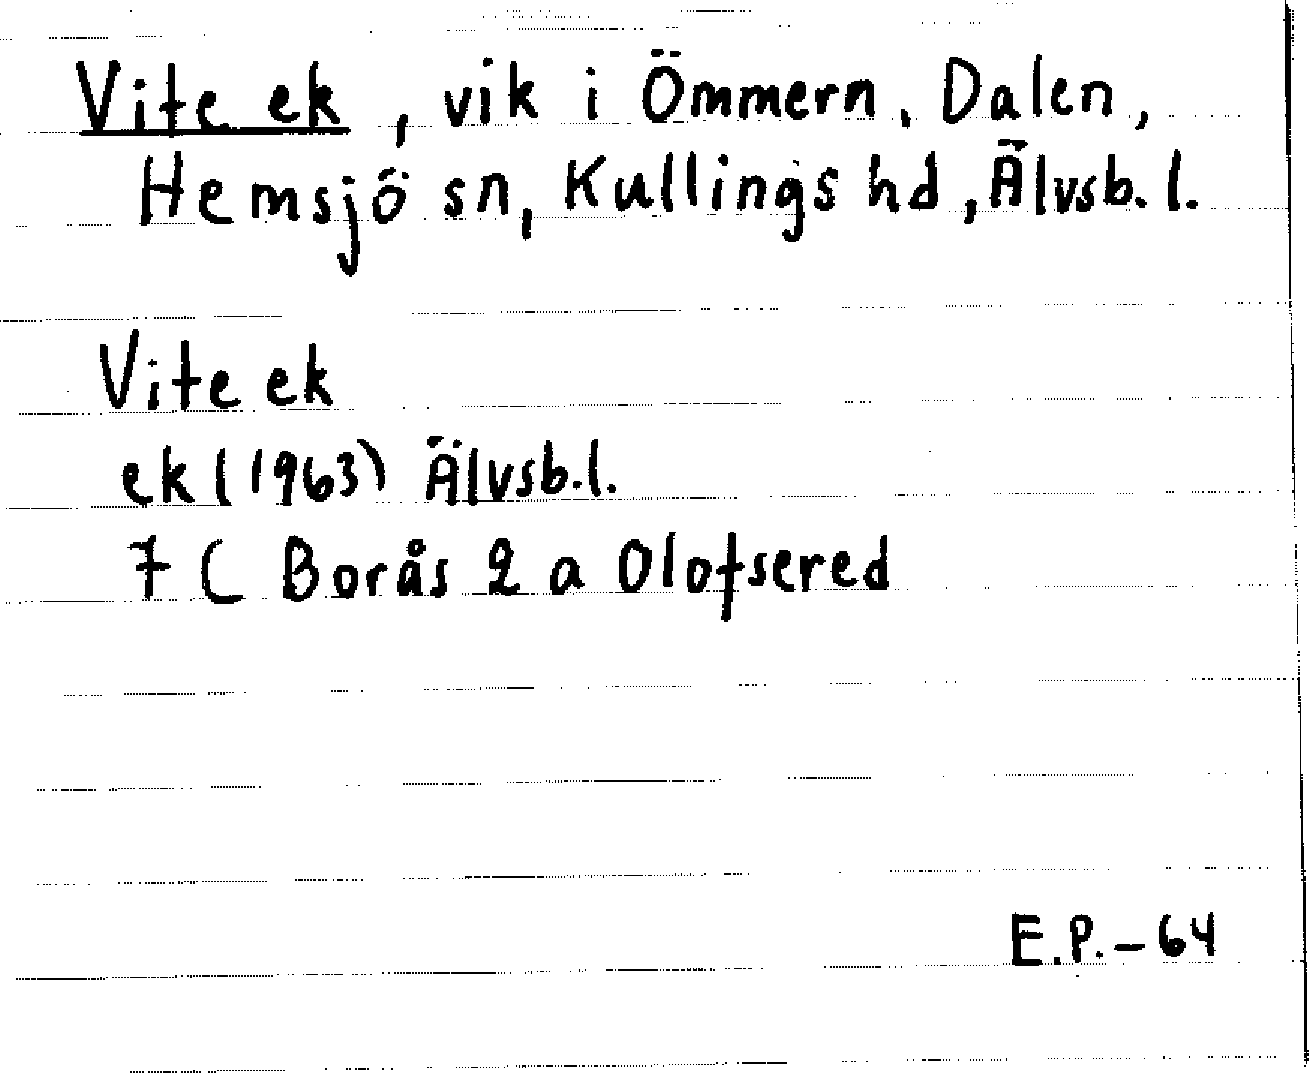 Vite ek, vik i Ömmern, Dalen,
Hemsjö sn, Kullings hd, Älvsb. l.
Vite ek
ek (1963) Älvsb. l.
7 C Borås 2 a Olofsered
E.P. – 64